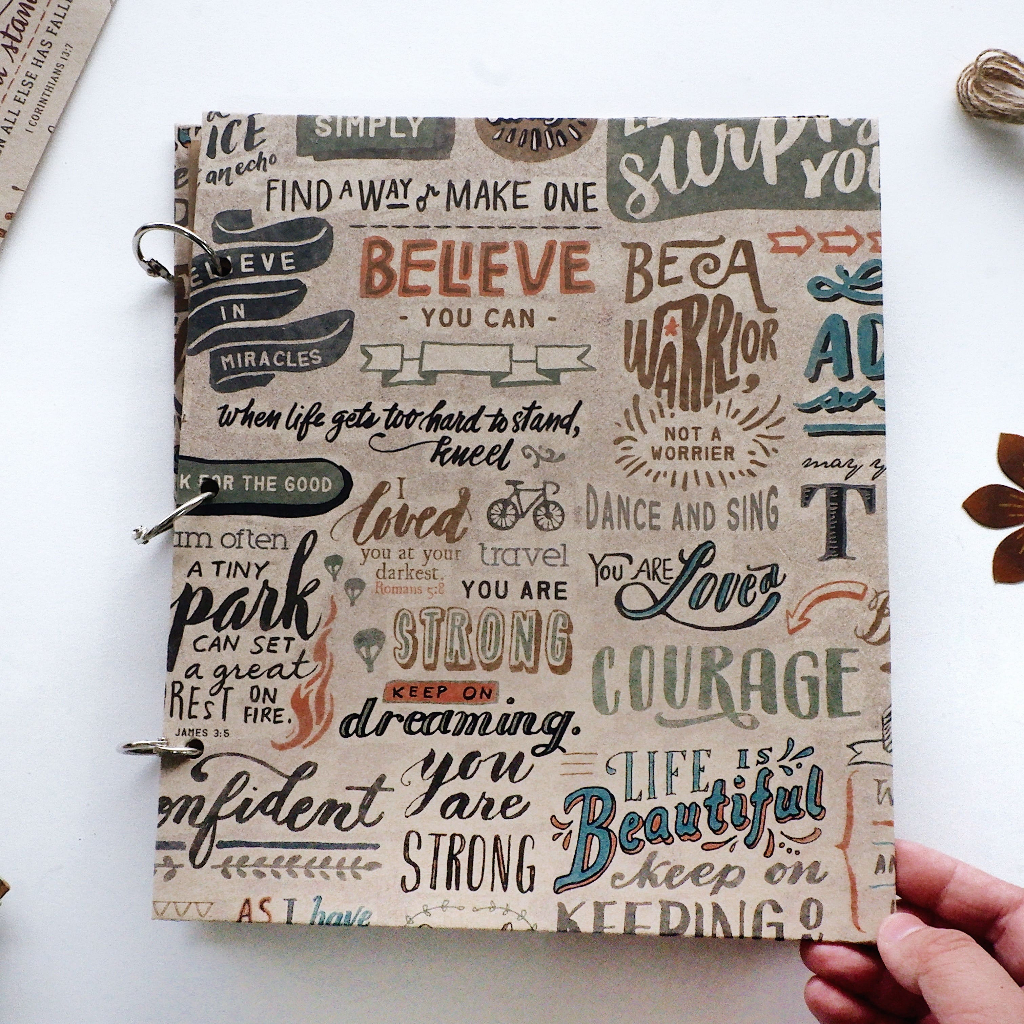 stand
N ALL ELSE HAS FALLE
1 CORINTHIANS 13:7
ICE
an echo
SIMPLY
surpris
YOU
FIND A WAY or MAKE ONE
ELIEVE
IN
MIRACLES
BELIEVE
- YOU CAN -
BE A
WARRIOR,
NOT A
WORRIER
AD
so
when life gets too hard to stand,
kneel
may y
K FOR THE GOOD
I
loved
you at your
darkest.
Romans 5:8
travel
DANCE AND SING
T
am often
A TINY
park
CAN SET
a great
REST ON
FIRE.
JAMES 3:5
YOU ARE
STRONG
YOU ARE Loved
COURAGE
KEEP ON
dreaming.
onfident
you
are
STRONG
LIFE IS
Beautiful
keep on
KEEPING O
AS I have